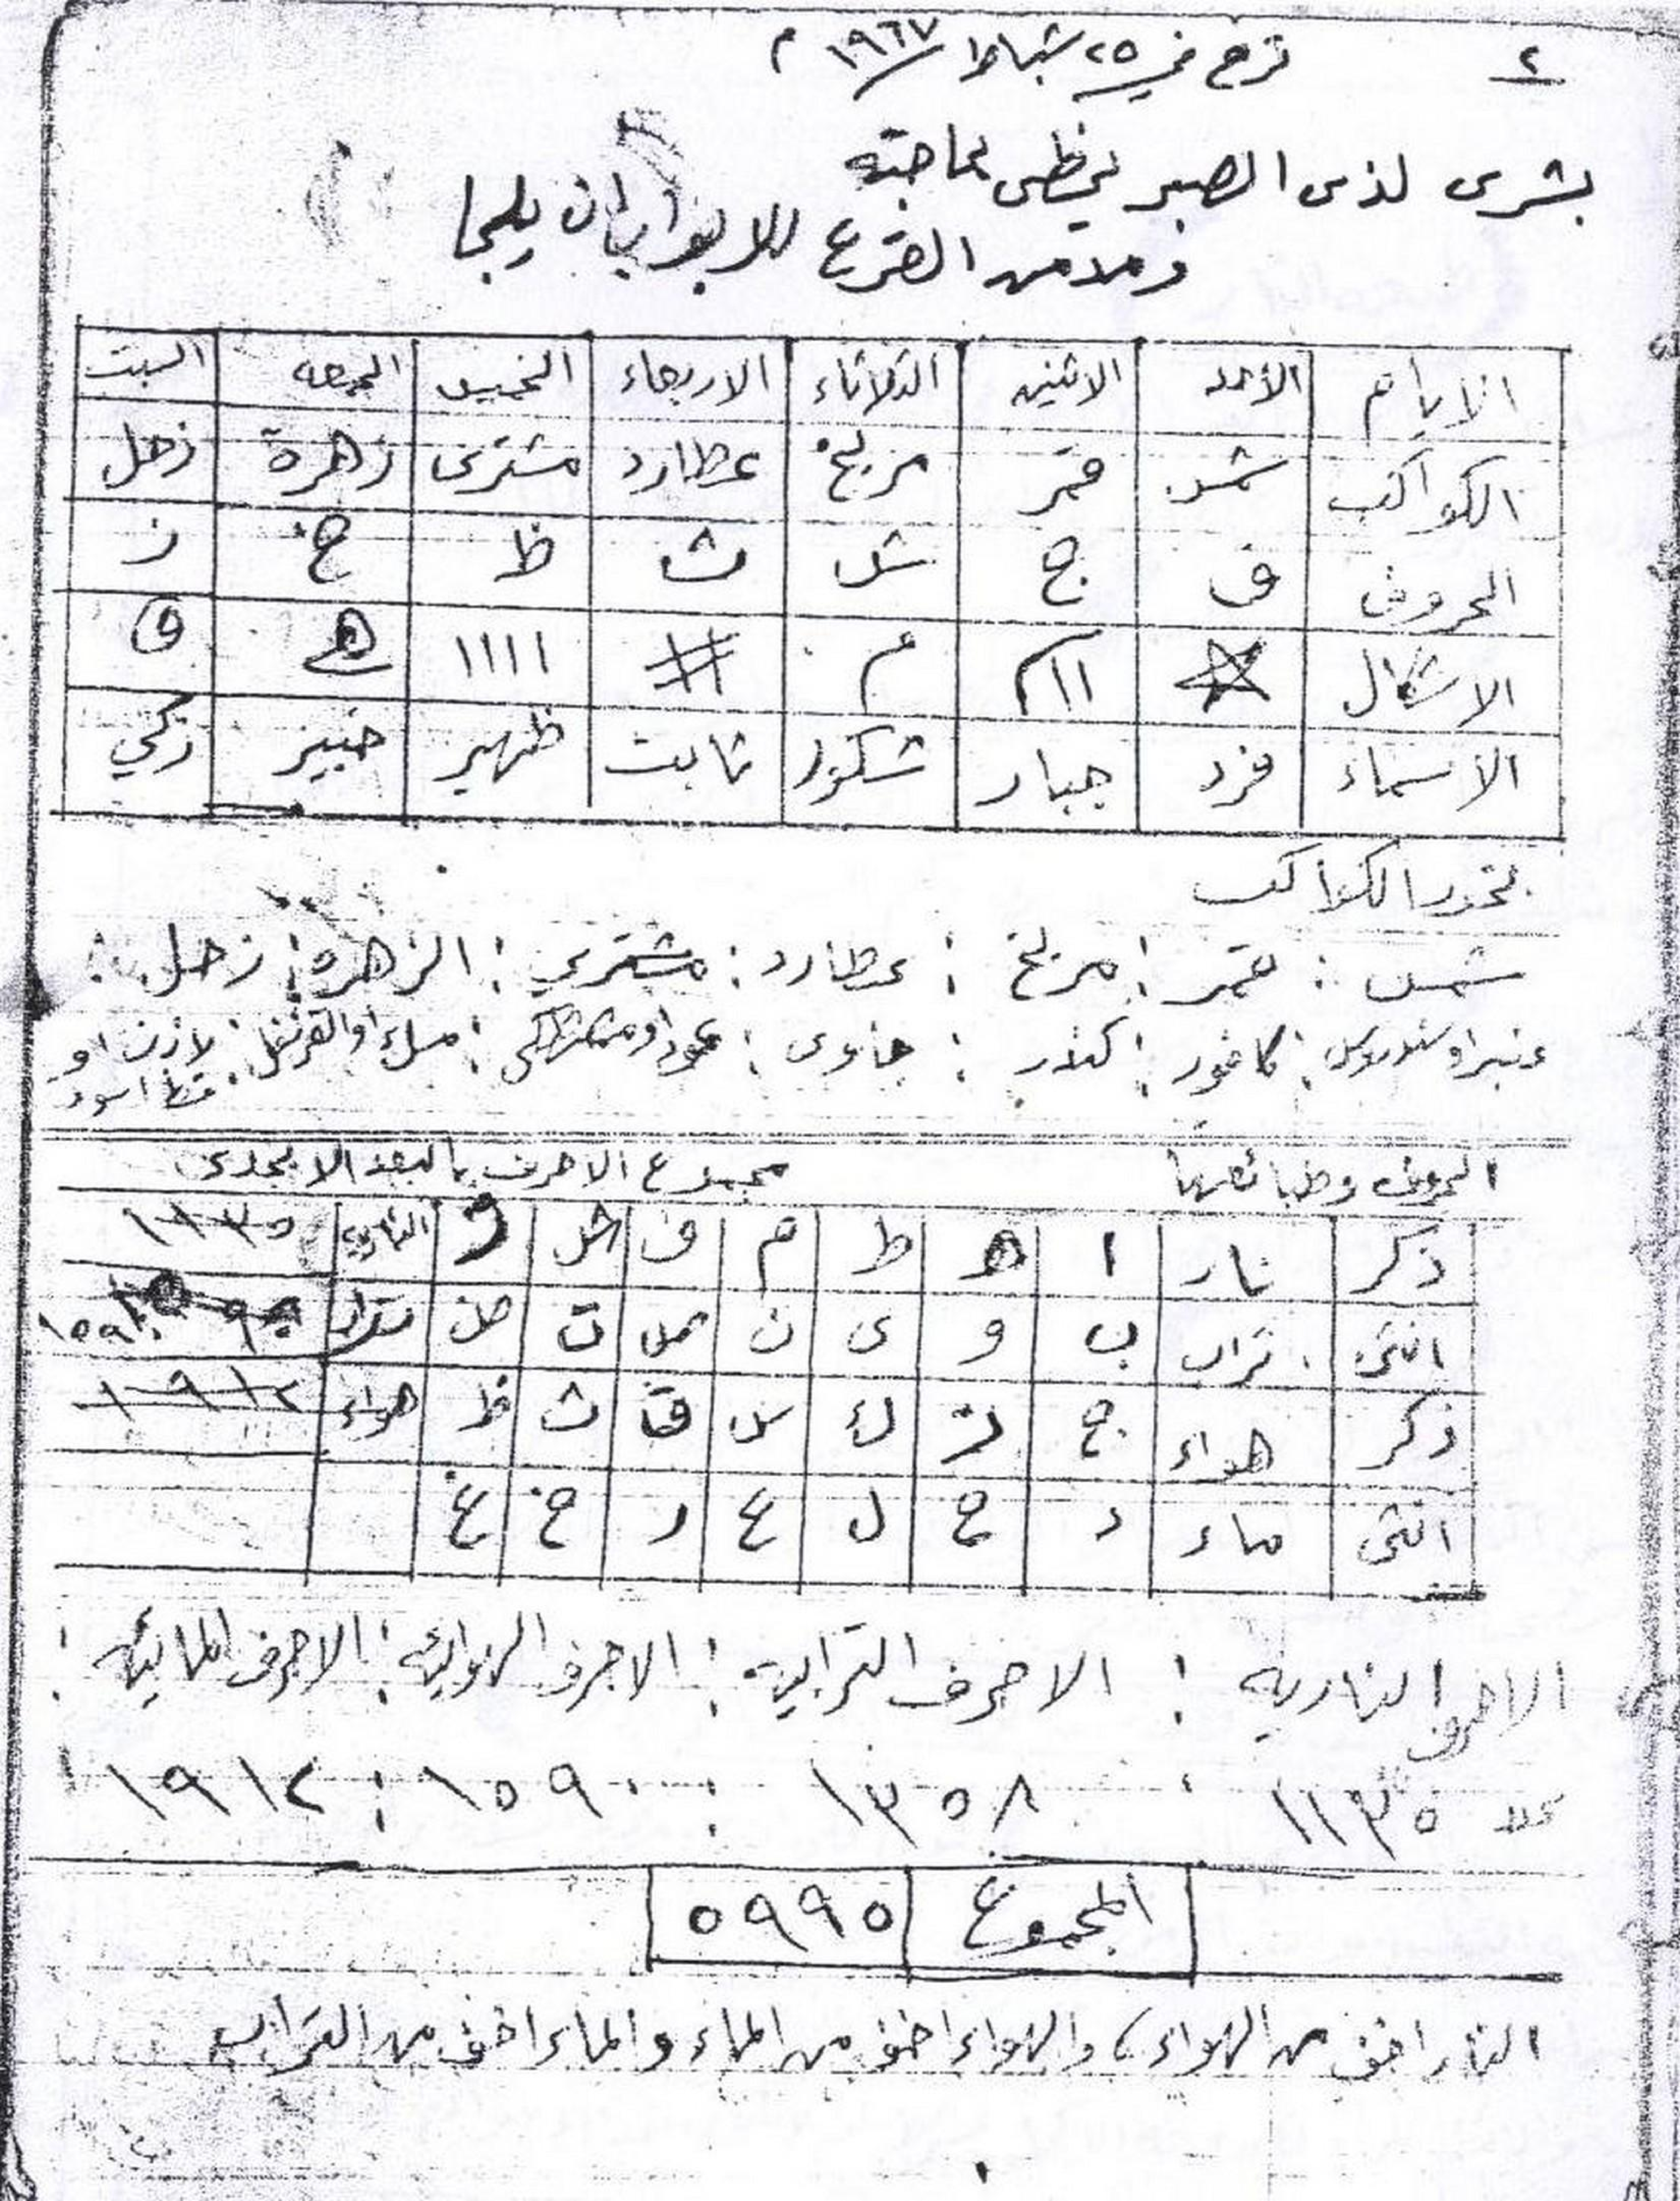 ٢
في ٢٥ شباط ١٩٦٧ م
بشرى لذى الصبر يحظى بحاجته
ومدمن القرع للابواب ان يلجا
الايام الأحد الاثنين الثلاثاء الاربعاء الخميس الجمعه السبت
الكواكب شمس قمر مريخ عطارد مشترى زهرة زحل
الحروف ف ج ش ث ظ خ ز
الاشكال ااام م # اااا ه و
الاسماء فرد جبار شكور ثابت ظهير خبير زكي
بخور الكواكب
شمس : قمر : مريخ : عطارد : مشتري : الزهره : زحل :
عنبر او سندروس : كافور : كندر : جاوى : عود او مصطكى : او القرنفل : لاذن او
اسود
الحروف وطبائعها مجموع الاحرف بالبعد الابجدى
ذكر نار ا ه ط م ف ش ذ الناريه ١١٣٥
انثى تراب ب و ى ن ص ت ض تراب
ذكر هواء ج ز ك س ق ث ظ هواء ١٩١٢
انثى ماء د ح ل ع ر خ غ
الاحرف الناريه : الاحرف الترابيه : الاحرف الهوائيه : الاحرف المائيه :
١١٣٥ : ١٣٥٨ : ١٥٩٠ : ١٩١٢
المجموع ٥٩٩٥
النار اخف من الهواء ، والهواء اخف من الماء والماء اخف من التراب